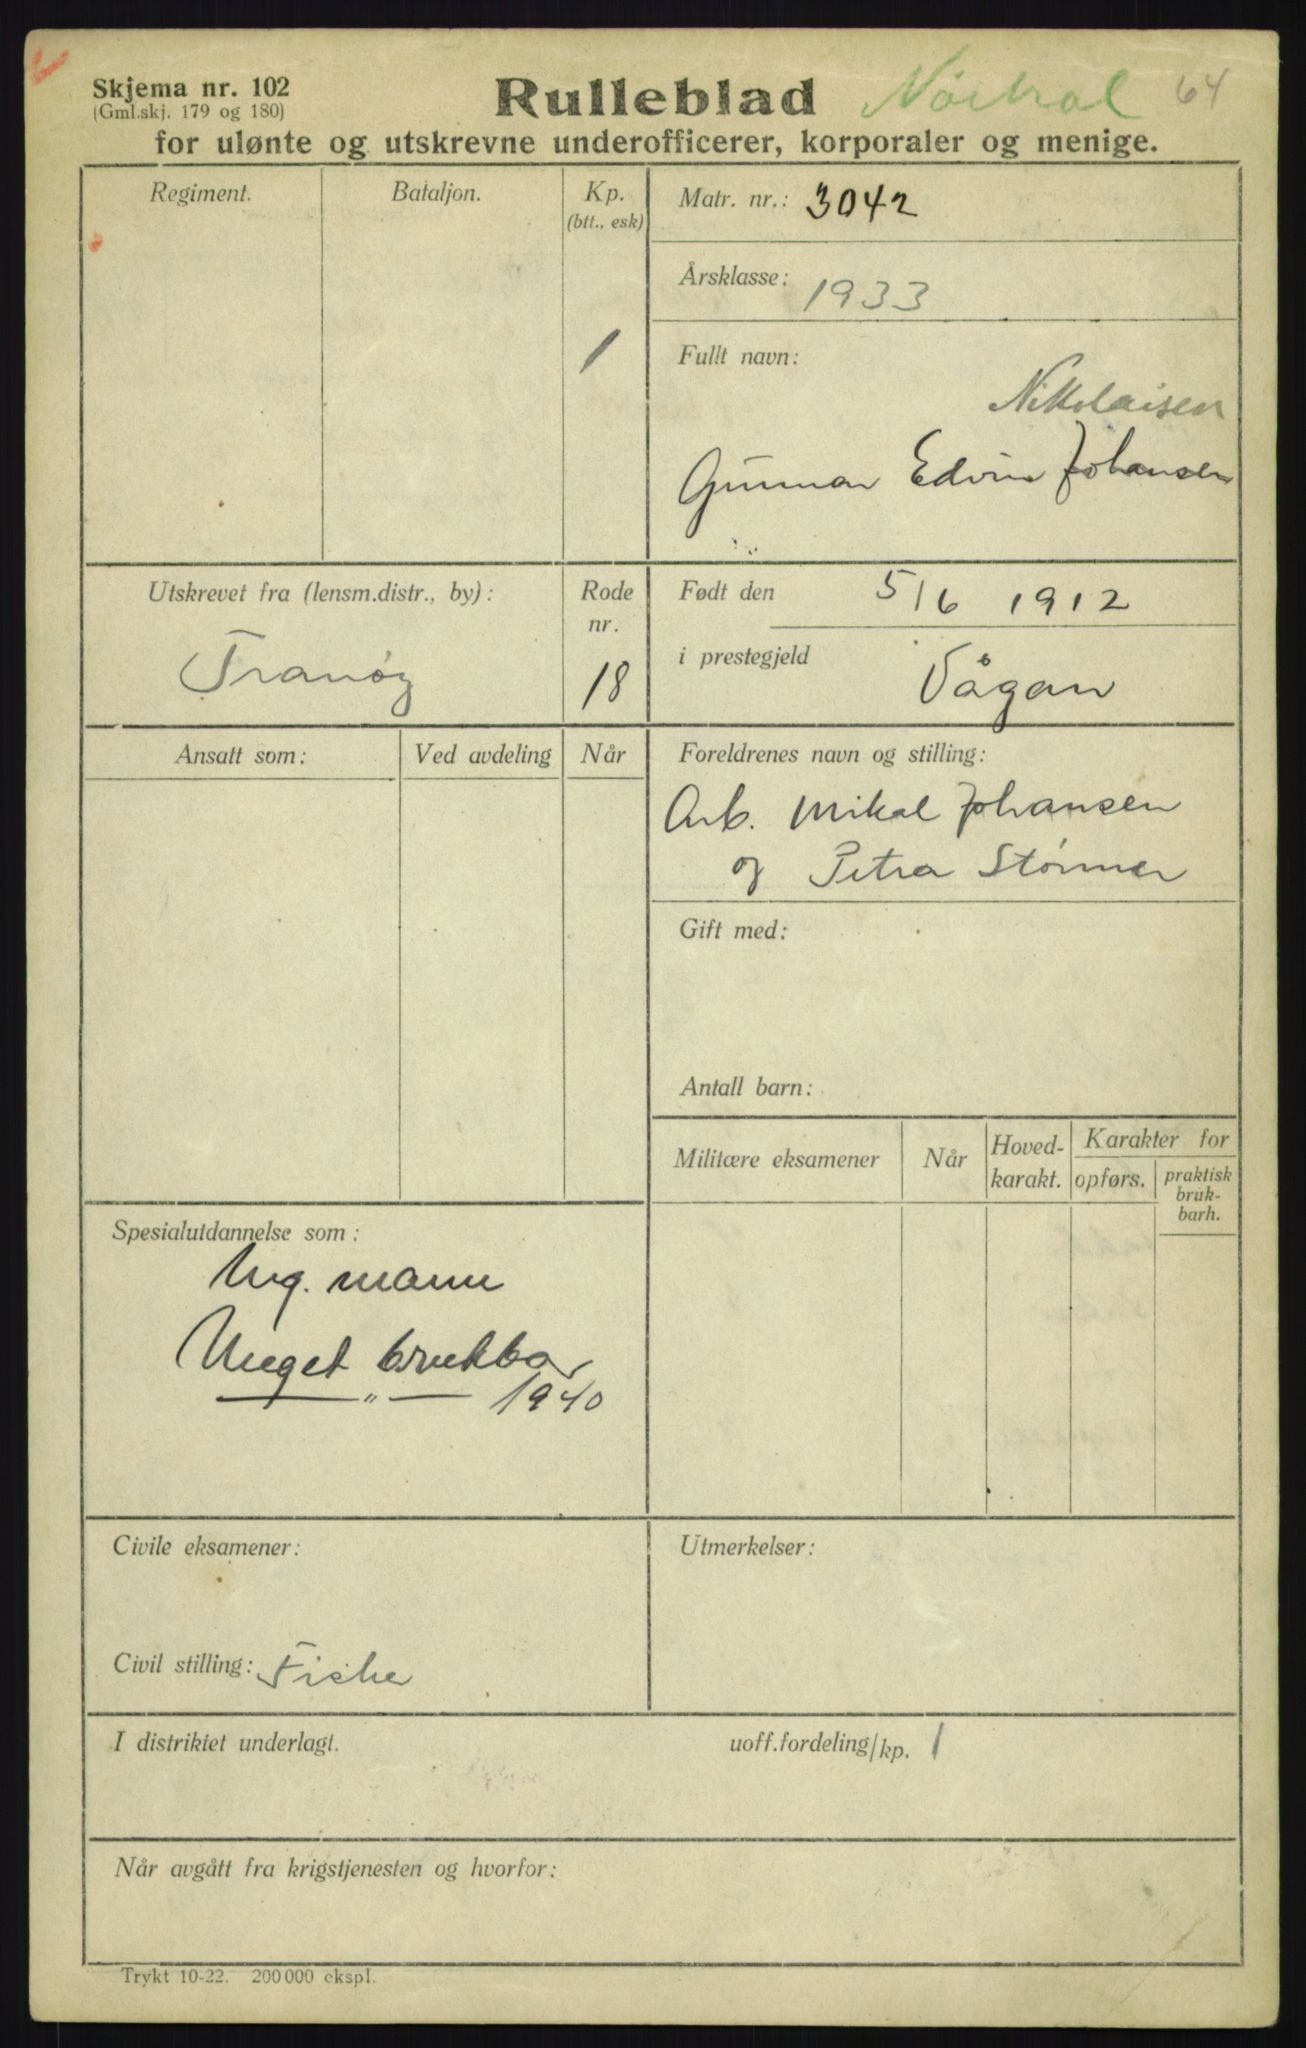 Skjema nr. 102
(Gml.skj. 179 og 180)
Rulleblad
64
for ulønte og utskrevne underofficerer, korporaler og menige.
Regiment.
Bataljon.
Kp.
(btt., esk)
1
Matr. nr.: 3042
Årsklasse: 1933
Fullt navn:
Nikolaisen
Gunnar Edvin Johansen
Utskrevet fra (lensm.distr., by):
Tranøy
Rode
nr.
18
Født den 5/6 1912
i prestegjeld Vågan
Ansatt som:
Ved avdeling
Når
Foreldrenes navn og stilling:
Arb. Mikal Johansen
og Petra Størmer
Gift med:
Antall barn:
Militære eksamener
Når
Hoved-
karakt.
Karakter for
opførs.
praktisk
bruk-
barh.
Spesialutdannelse som:
Mg. mann
Meget brukbar
— „ — 1940
Civile eksamener:
Civil stilling: Fisker
Utmerkelser:
I distriktet underlagt.
uoff.fordeling/kp. 1
Når avgått fra krigstjenesten og hvorfor:
Trykt 10-22. 200 000 ekspl.